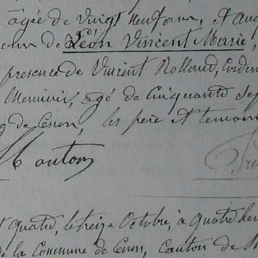 âgée de Vingt neuf ans, et au
de Léon Vincent Marie,
presence de Vincent Rolland, Corden
Menuisier, âgé de Cinquante Sep
de Cenon, les père et temoin
Mouton
quatre, le treize Octobre, à quatre heu
de la Commune de Cenon, Canton de